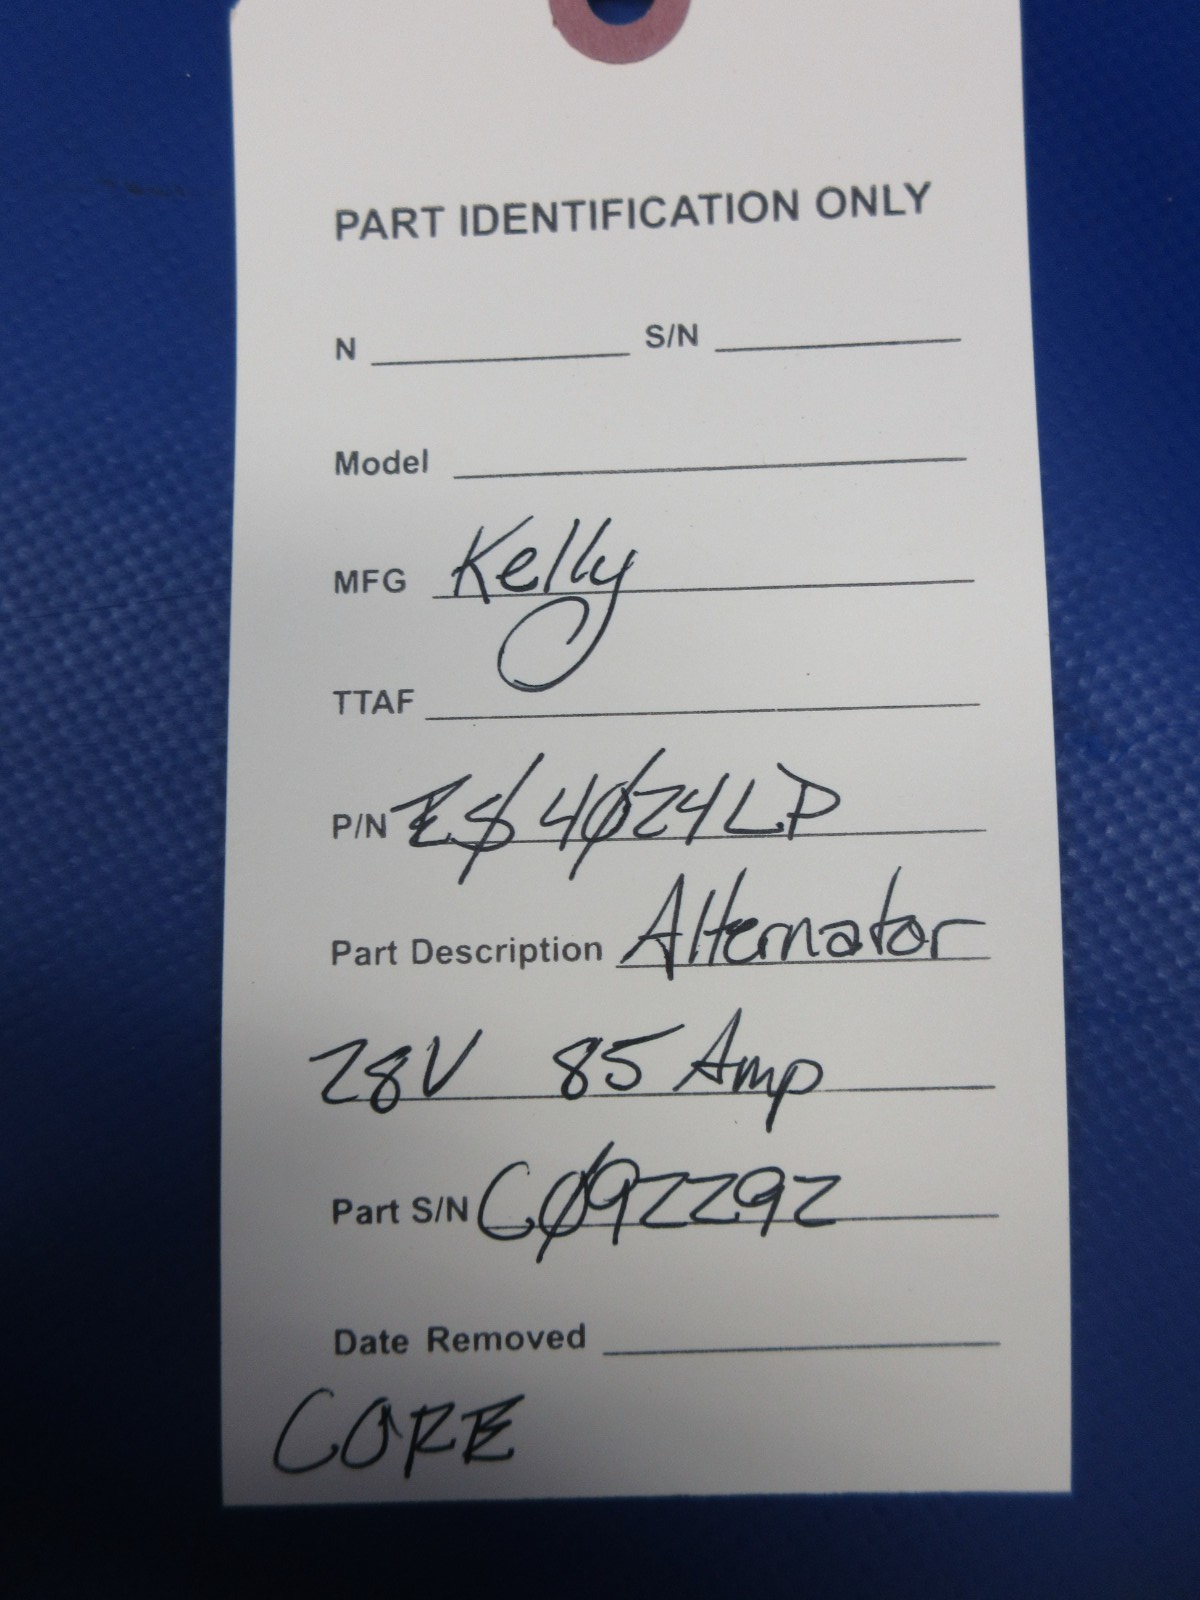 PART IDENTIFICATION ONLY
N S/N
Model
MFG Kelly
TTAF
P/N ES4024LP
Part Description Alternator
28V 85 Amp
Part S/N C092292
Date Removed
CORE